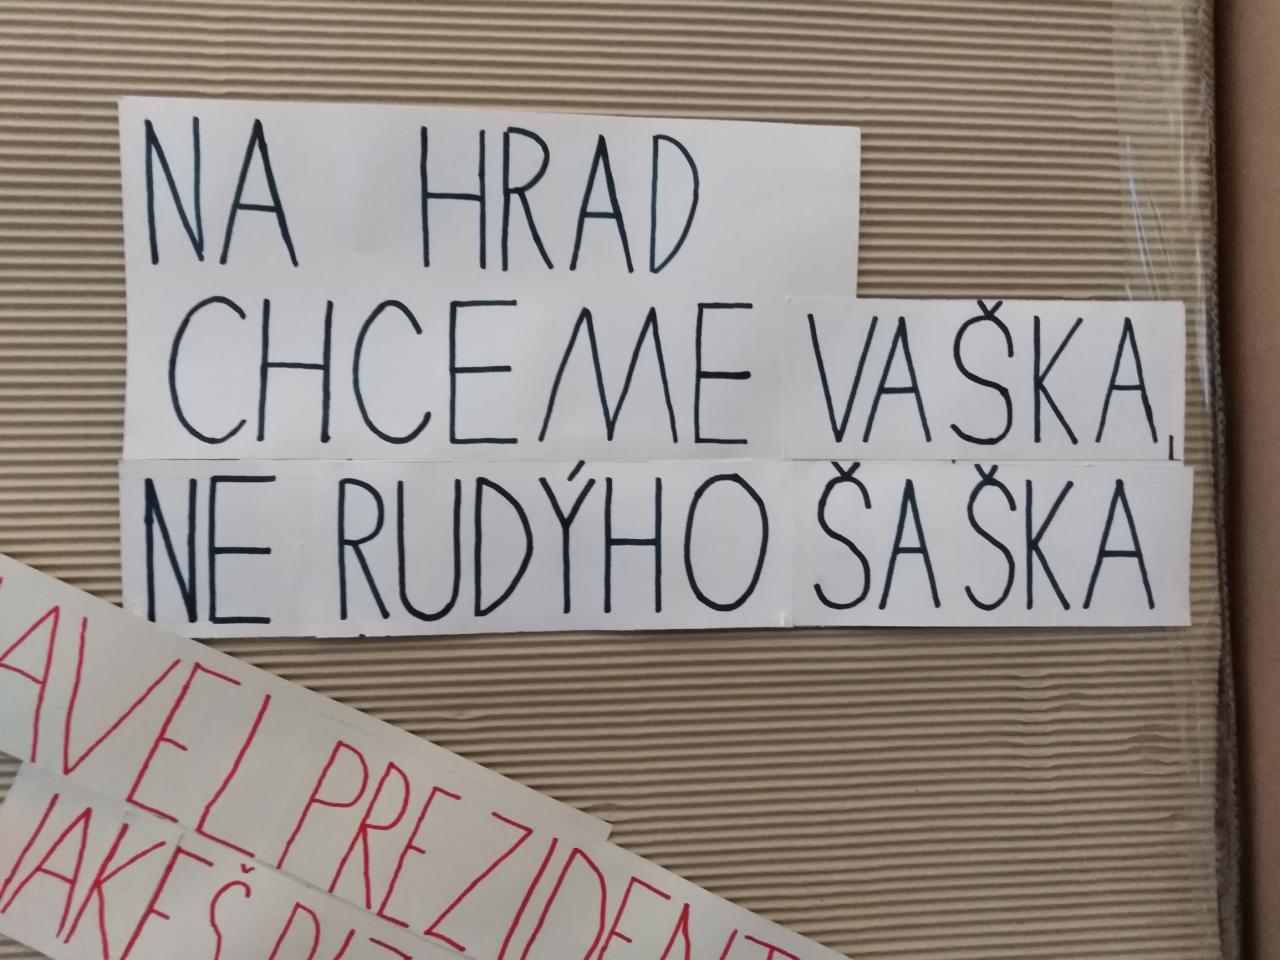 NA HRAD
CHCEME VAŠKA,
NE RUDÝHO ŠAŠKA
AVEL PREZIDENT
JAKEŠ